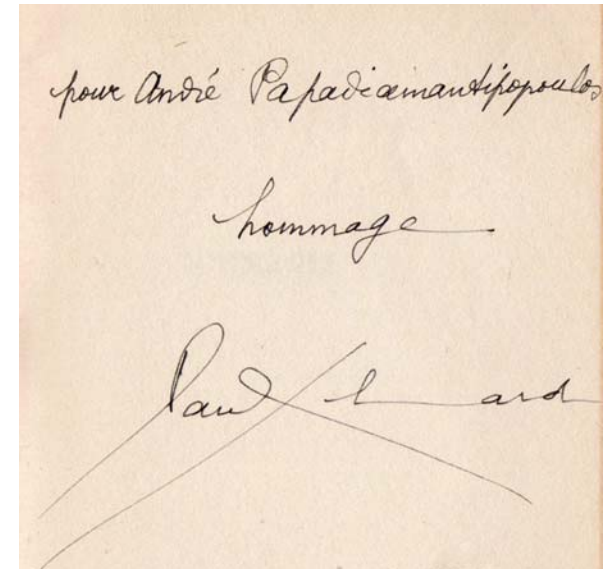 pour André Papadiamantipopoulos
hommage
Paul Eluard